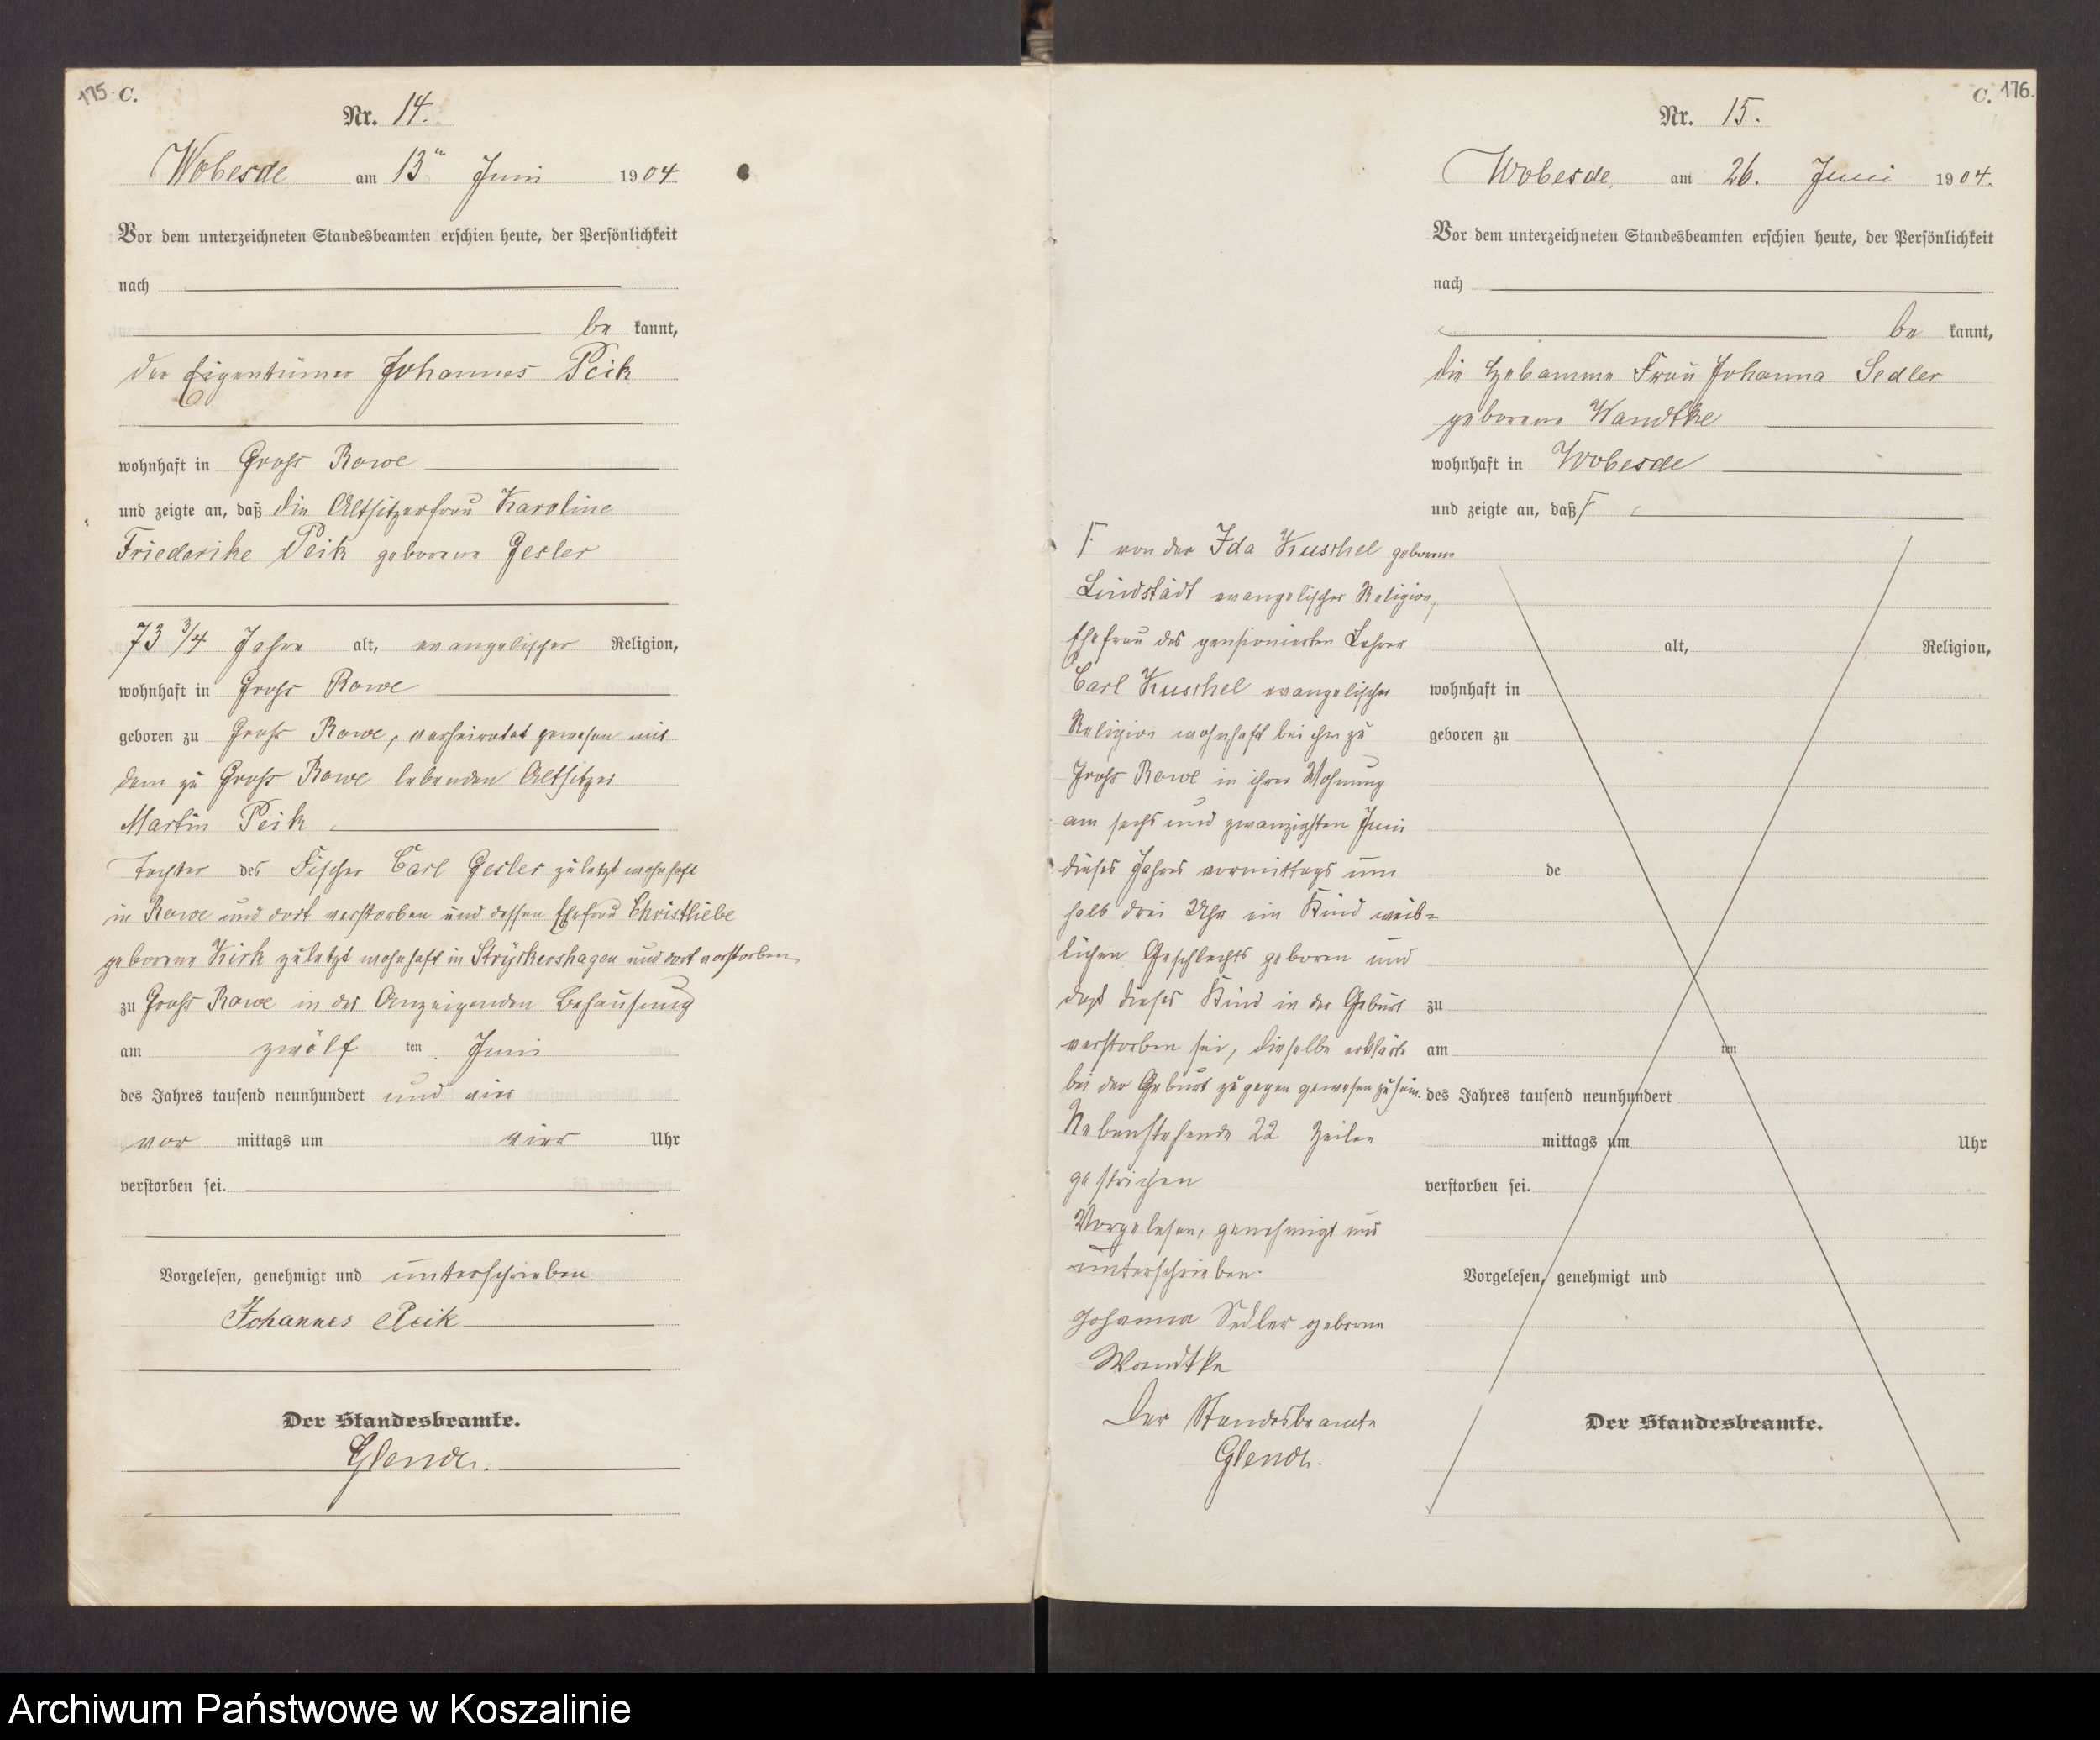 175. C.
Nr. 14.
Wobesde am 13ten Juni 1904
Vor dem unterzeichneten Standesbeamten erschien heute, der Persönlichkeit
nach
be kannt,
der Eigentümer Johannes Peik
wohnhaft in Groß Rowe
und zeigte an, daß die Altsitzerfrau Karoline
Friederike Peik geborene Gesler
73 3/4 Jahre alt, evangelischer Religion,
wohnhaft in Groß Rowe
geboren zu Groß Rowe, verheiratet gewesen mit
dem zu Groß Rowe lebenden Altsitzer
Martin Peik
Tochter des Fischer Carl Gesler zuletzt wohnhaft
in Rowe und dort verstorben und dessen Ehefrau Christliebe
geborene Kirk zuletzt wohnhaft in und dort verstorben
zu Groß Rowe in der Anzeigenden Behausung
am zwölf ten Juni
des Jahres tausend neunhundert und vier
vor mittags um vier Uhr
verstorben sei.
Vorgelesen, genehmigt und unterschrieben
Johannes Peik
Der Standesbeamte.
C. 176.
Nr. 15.
Wobesde, am 26. Juni 1904.
Vor dem unterzeichneten Standesbeamten erschien heute, der Persönlichkeit
nach
be kannt,
die Hebamme Frau Johanna Sedler
geborene Wandtke
wohnhaft in Wobesde
und zeigte an, daß Γ
Γ von der Ida Kuschel geborene
Lindstädt evangelischer Religion,
Ehefrau des pensionierten Lehrer
Carl Kuschel evangelischer
Religion wohnhaft bei ihr zu
Groß Rowe in ihrer Wohnung
am sechs und zwanzigsten Juni
dieses Jahres vormittags um
halb drei Uhr ein Kind weib=
lichen Geschlechts geboren und
daß dieses Kind in der Geburt
verstorben sei, dieselbe erklärte
bei der Geburt zugegen gewesen zu sein.
Nebenstehende 22 Zeilen
gestrichen
Vorgelesen, genehmigt und
unterschrieben.
Johanna Sedler geborne
Wandtke
Der Standesbeamte
alt, Religion,
wohnhaft in
geboren zu
de
zu
am ten
des Jahres tausend neunhundert
mittags um Uhr
verstorben sei.
Vorgelesen, genehmigt und
Der Standesbeamte.
Archiwum Państwowe w Koszalinie